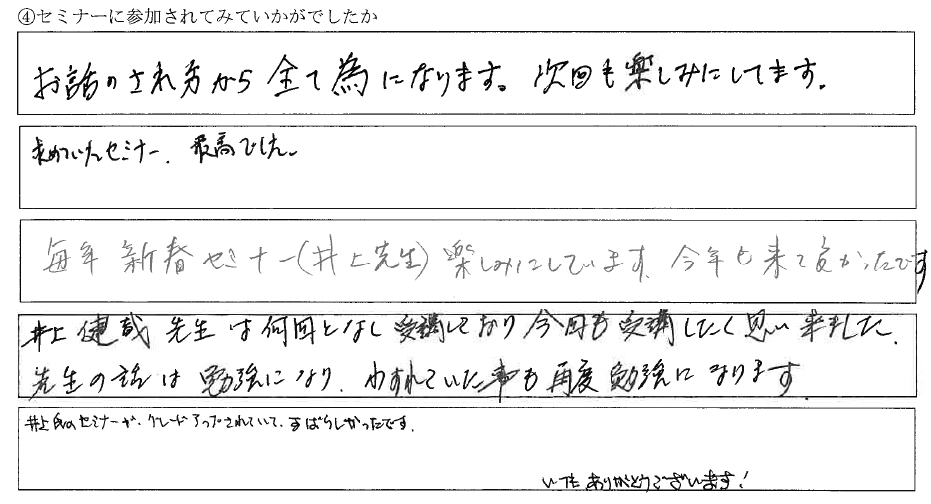 ④セミナーに参加されてみていかがでしたか
お話のされ方から全て為になります。次回も楽しみにしてます。
求めていたセミナー、最高でした。
毎年 新春セミナー(井上先生)楽しみにしています、今年も来て良かったです
井上健哉先生は何回となし受講しており今回も受講したく思い来ました。
先生の話は勉強になり、わすれていた事も再度勉強になります
井上氏のセミナーが、グレードアップされていて、すばらしかったです。
いつもありがとうございます!